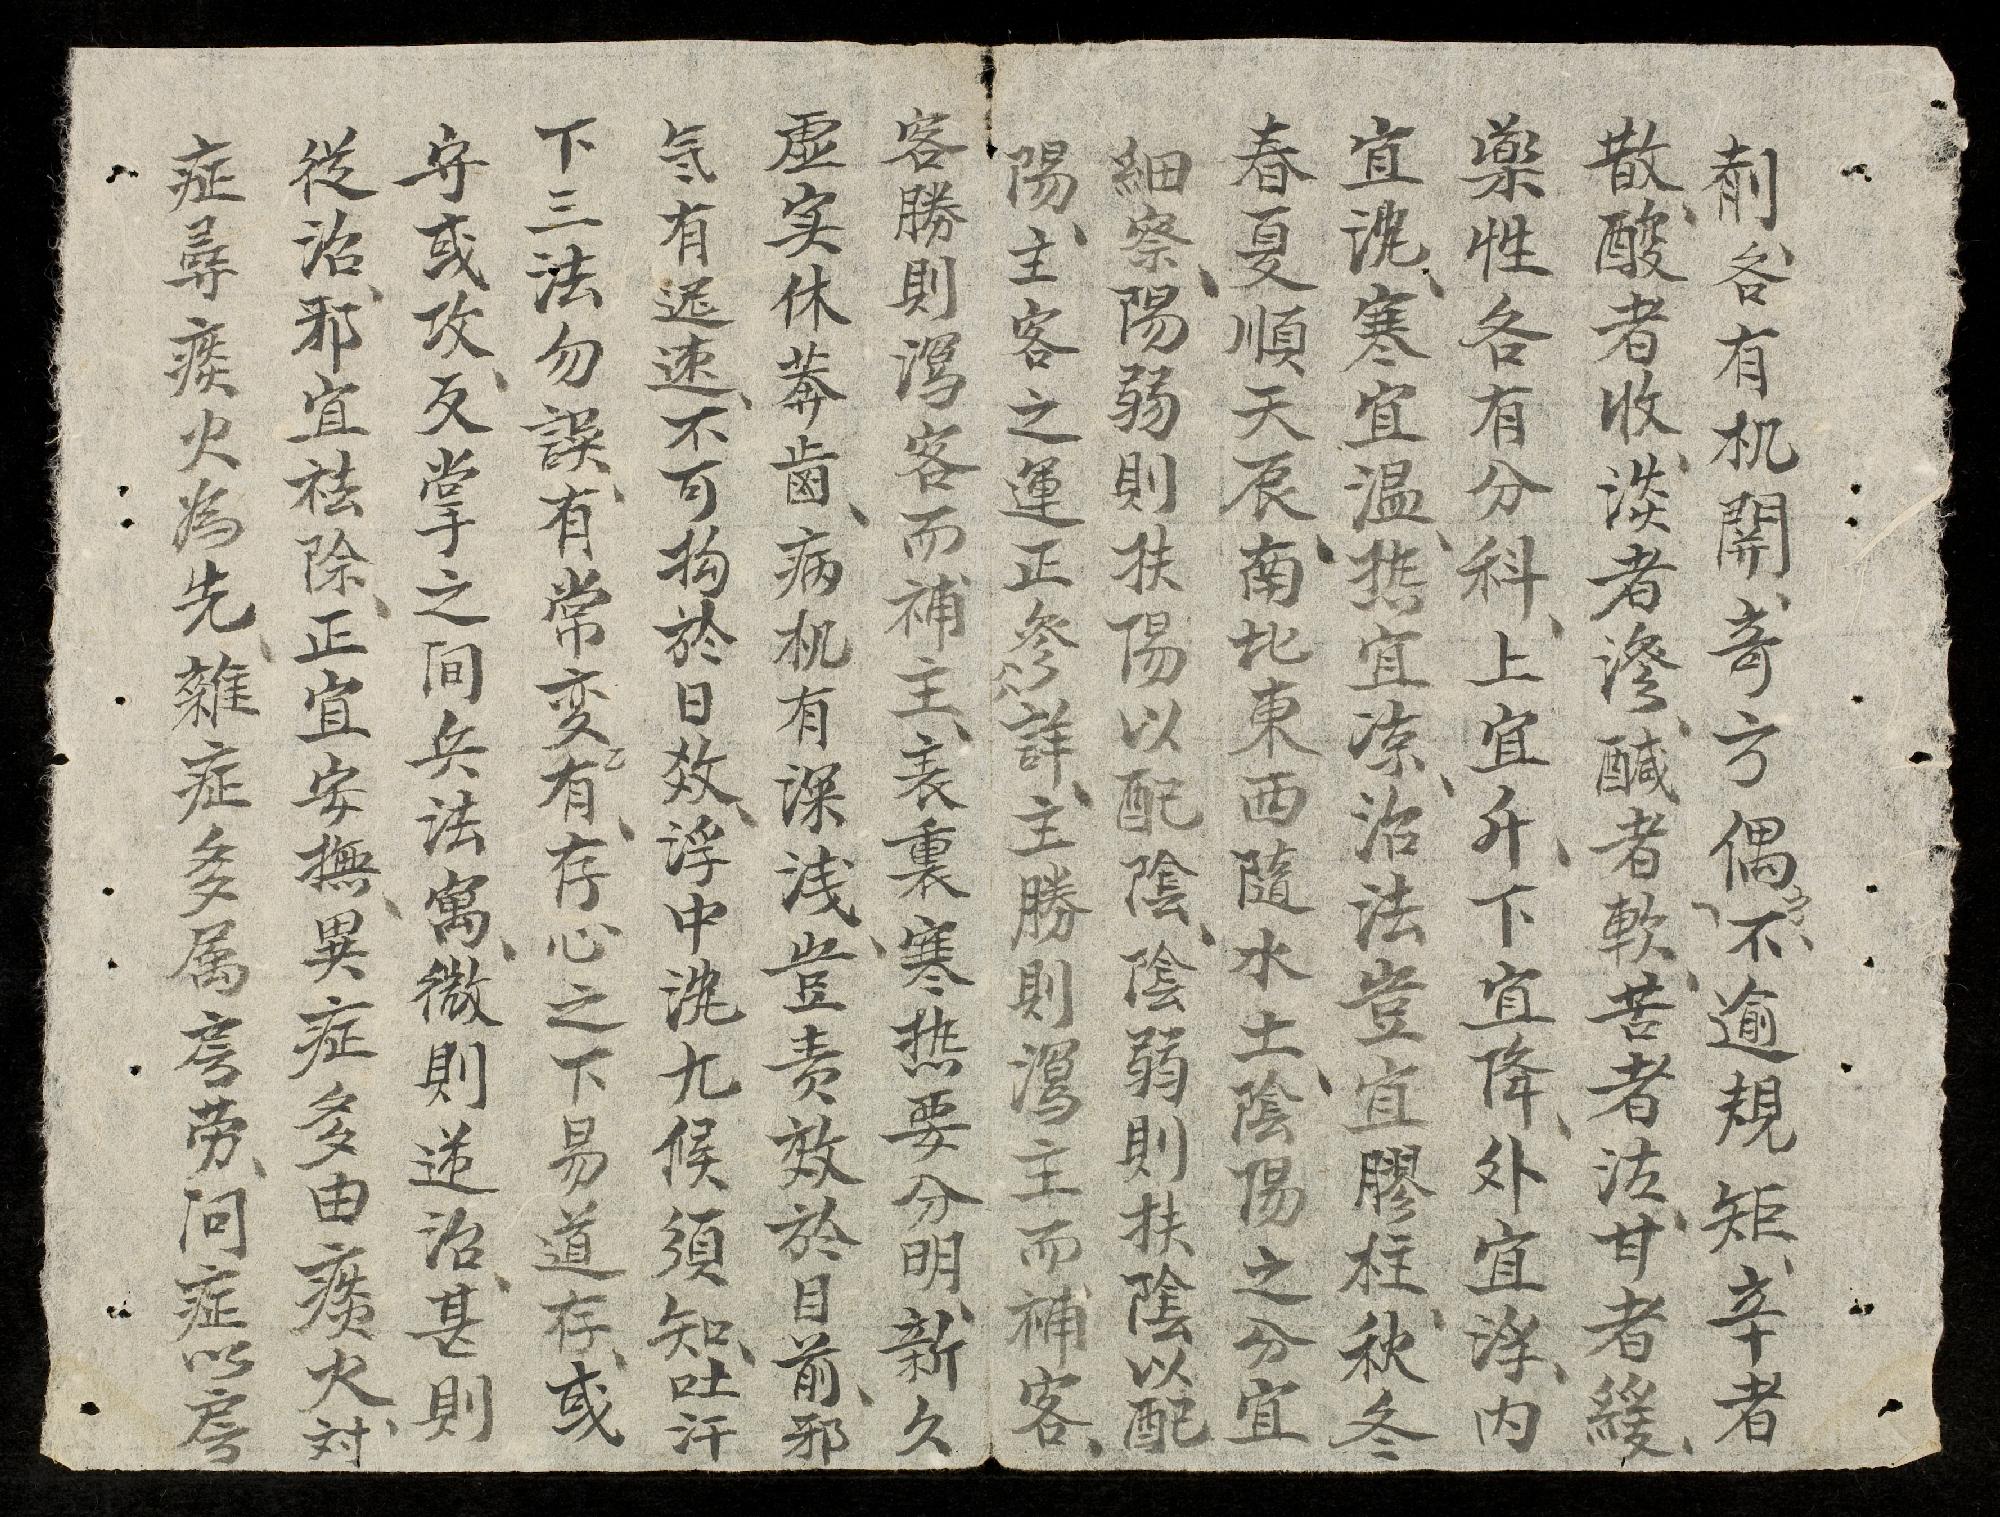 剤各有机関、竒方偶不逾規矩、辛者
散、酸者收、淡者滲、醎者軟、苦者泫、甘者緩、
薬性各有分科、上宜升、下宜降、外宜浮、内
宜沈、寒宜温、热宜凉、治法豈宜膠柱、秋冬
春夏順天辰、南北東西隨水土、陰陽之分宜
細察、陽弱則扶陽以配陰、陰弱則扶陰以配
陽、主客之運正參詳、主勝則瀉主而補客、
客勝則瀉客而補主、表裏寒热要分明、新久
虚实休莽鹵、病机有深浅、豈责效於目前、邪
氣有遅速、不可拘於日效、浮中沈九候須知、吐汗
下三法勿誤、有常変有、存心之下易道存、或
守或攻、反掌之间兵法寓、微則逆治、甚則
從治、邪宜祛除、正宜安撫、異症多由痰火、対
症尋痰火為先、雜症多属房劳、问症以房